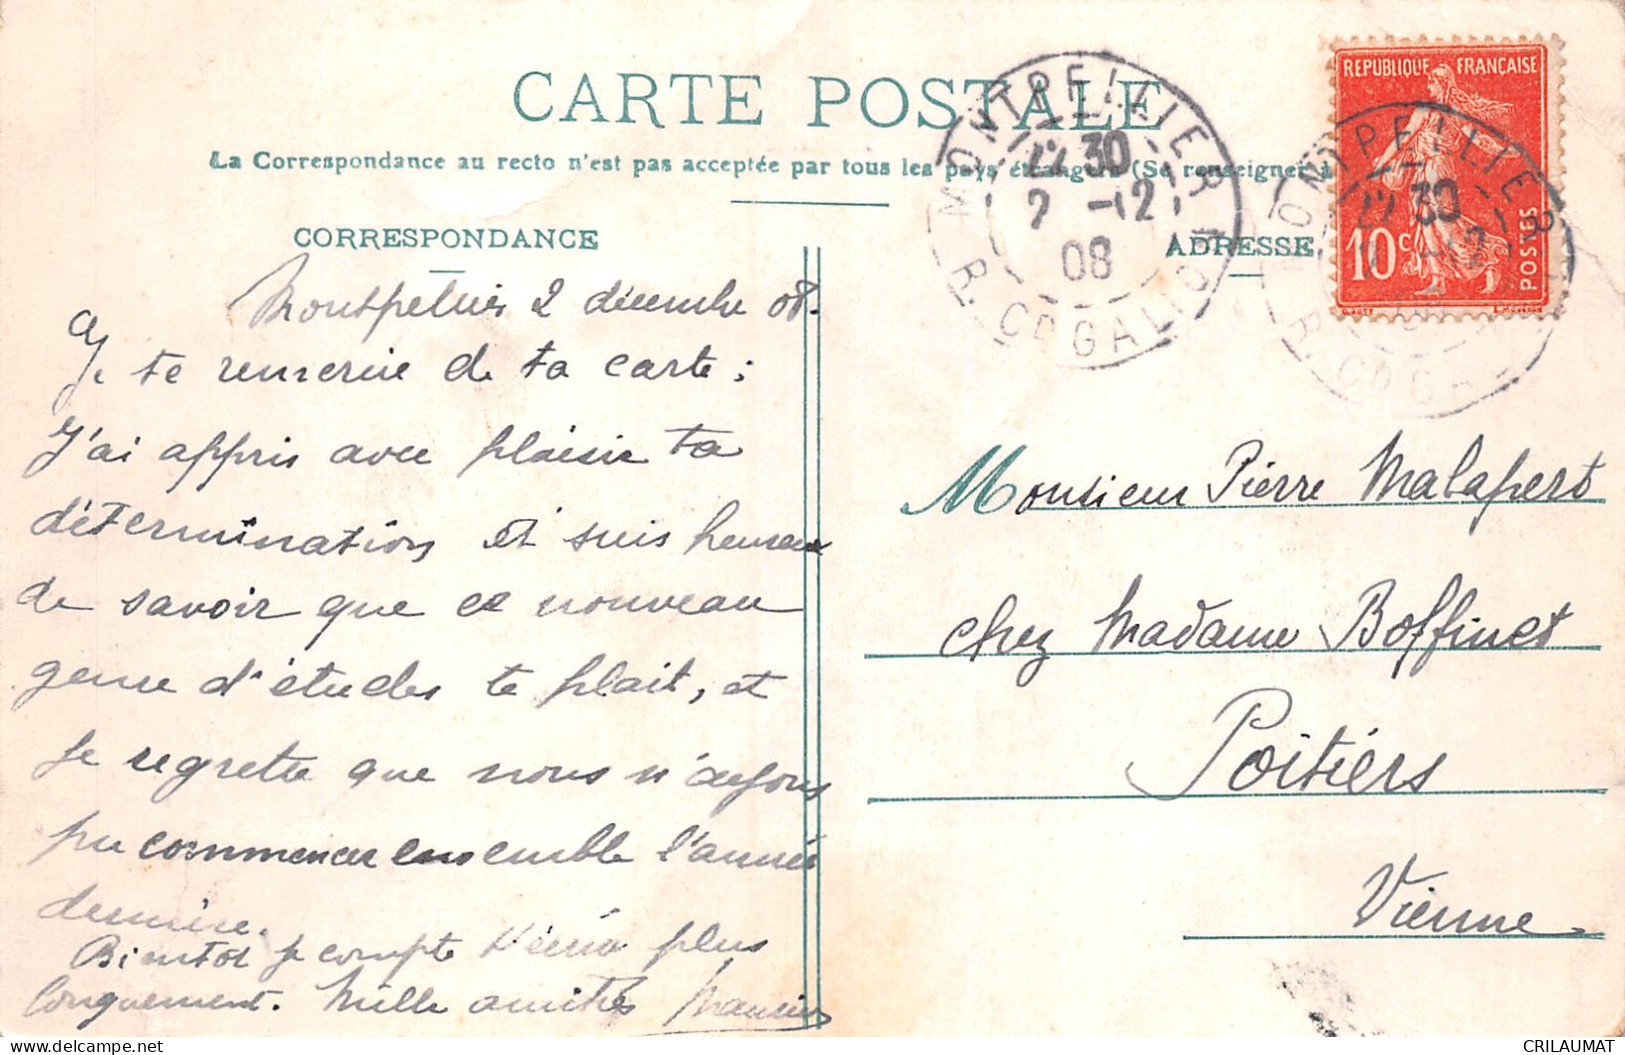 CARTE POSTALE
La Correspondance au recto n'est pas acceptée par tous les pays étrangers (Se renseigner à
CORRESPONDANCE
ADRESSE
REPUBLIQUE FRANÇAISE
10c
POSTES
MONTPELLIER
12 30
2 -12
08
R. CD GALLION
MONTPELLIER
12 30
-12
R. CD GA
Montpellier 2 décembre 08.
Je te remercie de ta carte ;
J'ai appris avec plaisir ta
détermination et suis heureux
de savoir que ce nouveau
genre d'études te plait, et
je regrette que nous n'ayons
pu commencer ensemble l'année
dernière.
Bientôt je compte t'écrire plus
longuement. Mille amitiés Maurice
Monsieur Pierre Malapert
chez Madame Boffinet
Poitiérs
Vienne.
CRILAUMAT